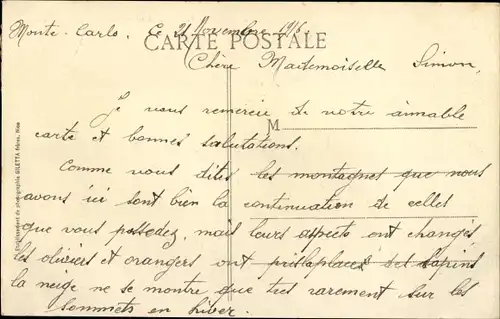 Monte-Carlo. Ce 21 Novembre 1916.
CARTE POSTALE
Chère Mademoiselle Simon,
M
Je vous remercie de votre aimable
carte et bonnes salutations.
Comme vous dites les montagnes que nous
avons ici sont bien la continuation de celles
que vous possedez, mais leurs aspects ont changés
les oliviers et orangers ont pris la place des sapins
la neige ne se montre que très rarement sur les
sommets en hiver.
Etablissement de photographie GILETTA frères, Nice